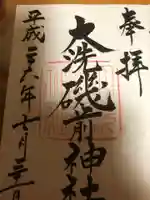 奉拝
大洗磯前神社
平成二六年七月二二日